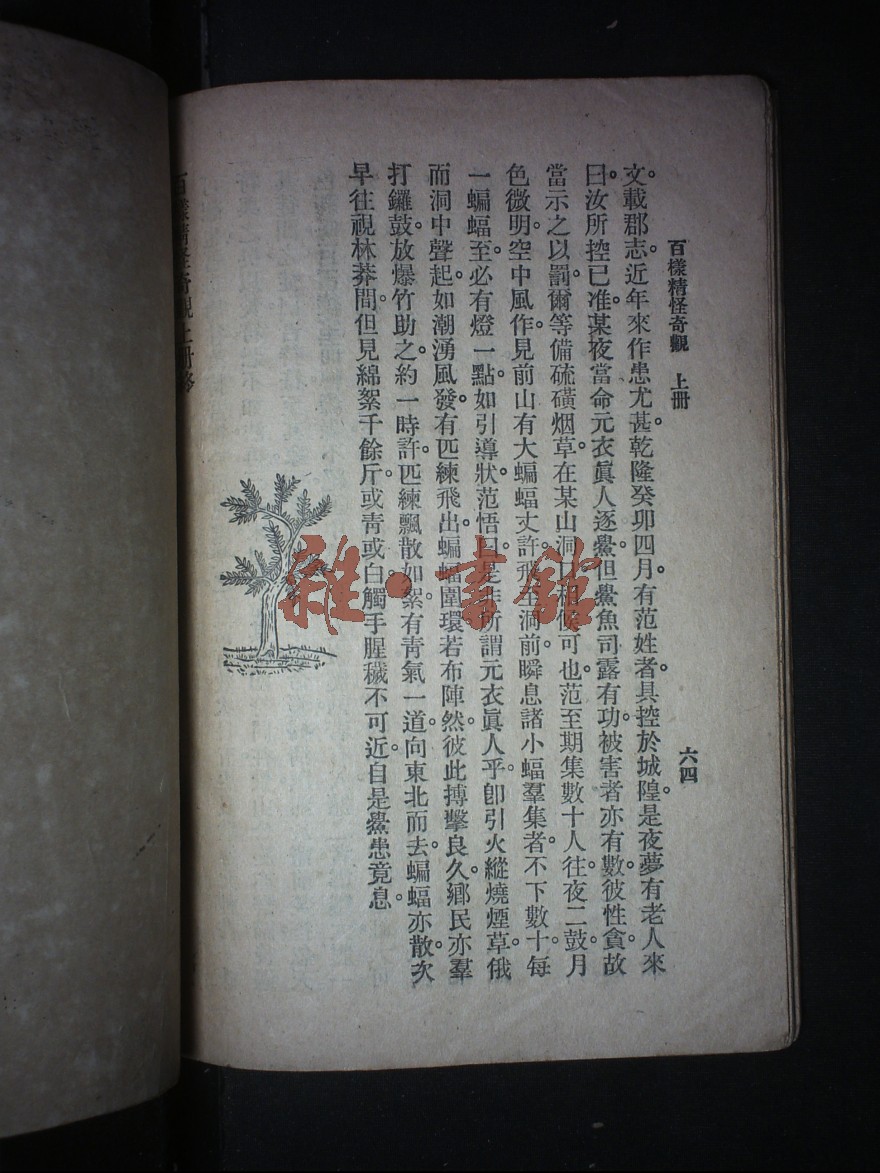 百樣精怪奇觀 上冊
六四
文載郡志近年來作患尤甚。乾隆癸卯四月。有范姓者具控於城隍。是夜夢有老人來
曰。汝所控已准。某夜當命元衣眞人逐鱟。但鱟魚司露有功。被害者亦有數。彼性貪故
當示之以罰。爾等備硫磺烟草在某山洞口相候可也。范至期集數十人往。夜二鼓。月
色微明。空中風作。見前山有大蝙蝠丈許飛至洞前。瞬息諸小蝠羣集者不下數十。每
一蝙蝠至。必有燈一點。如引導狀。范悟曰。是非所謂元衣眞人乎。卽引火縱燒煙草。俄
而洞中聲起。如潮湧風發。有匹練飛出。蝙蝠圍環若布陣然。彼此搏擊良久。鄉民亦羣
打鑼鼓。放爆竹助之。約一時許。匹練飄散如絮。有靑氣一道。向東北而去。蝙蝠亦散。次
早往視林莽間。但見綿絮千餘斤。或靑或白。觸手腥穢不可近。自是鱟患竟息。
百樣精怪奇觀上冊終
雜·書館